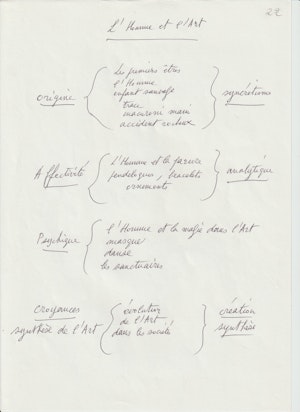 22
L'Homme et l'Art
Les premiers êtres
l'Homme
origine enfant sauvage syncrétisme
trace
macaroni main
accident curieux
Affectivité L'Homme et la parure analytique
pendeloques, bracelets
ornements
Psychique l'Homme et la magie dans l'Art
masque
danse
les sanctuaires
croyances évolution création
synthèse de l'Art de l'Art synthèse
dans les société